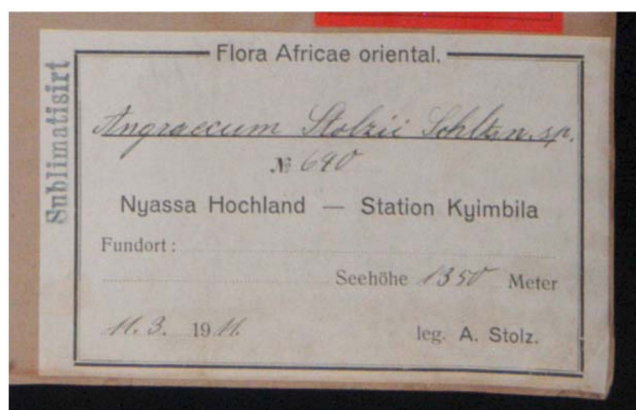 Flora Africae oriental.
Sublimatisirt
Angraecum Stolzii Schltr. n. sp.
№ 690
Nyassa Hochland — Station Kyimbila
Fundort:
Seehöhe 1350 Meter
11. 3. 1911.
leg. A. Stolz.